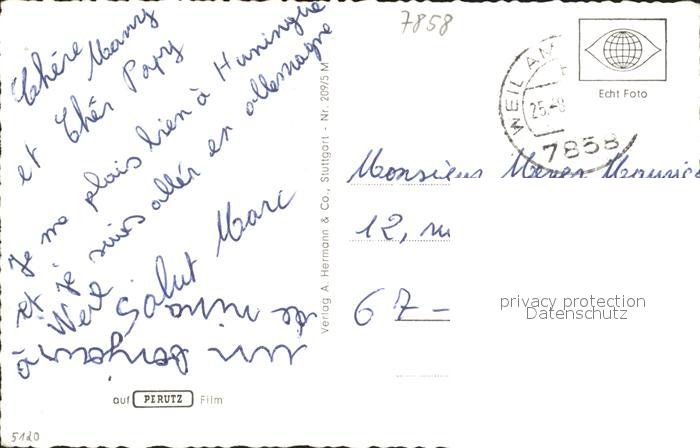 7858
Chère Mamy
et Chér Papy
Je me plais bien à Huningue
et je suis allér en allemagne
Salut Marc
Verlag A. Hermann & Co., Stuttgart - Nr. 209/5 M
auf PERUTZ Film
5120
Echt Foto
WEIL AM
25.
7858
Monsieur Meyer Maurice
12, ru
67 -
privacy protection
Datenschutz